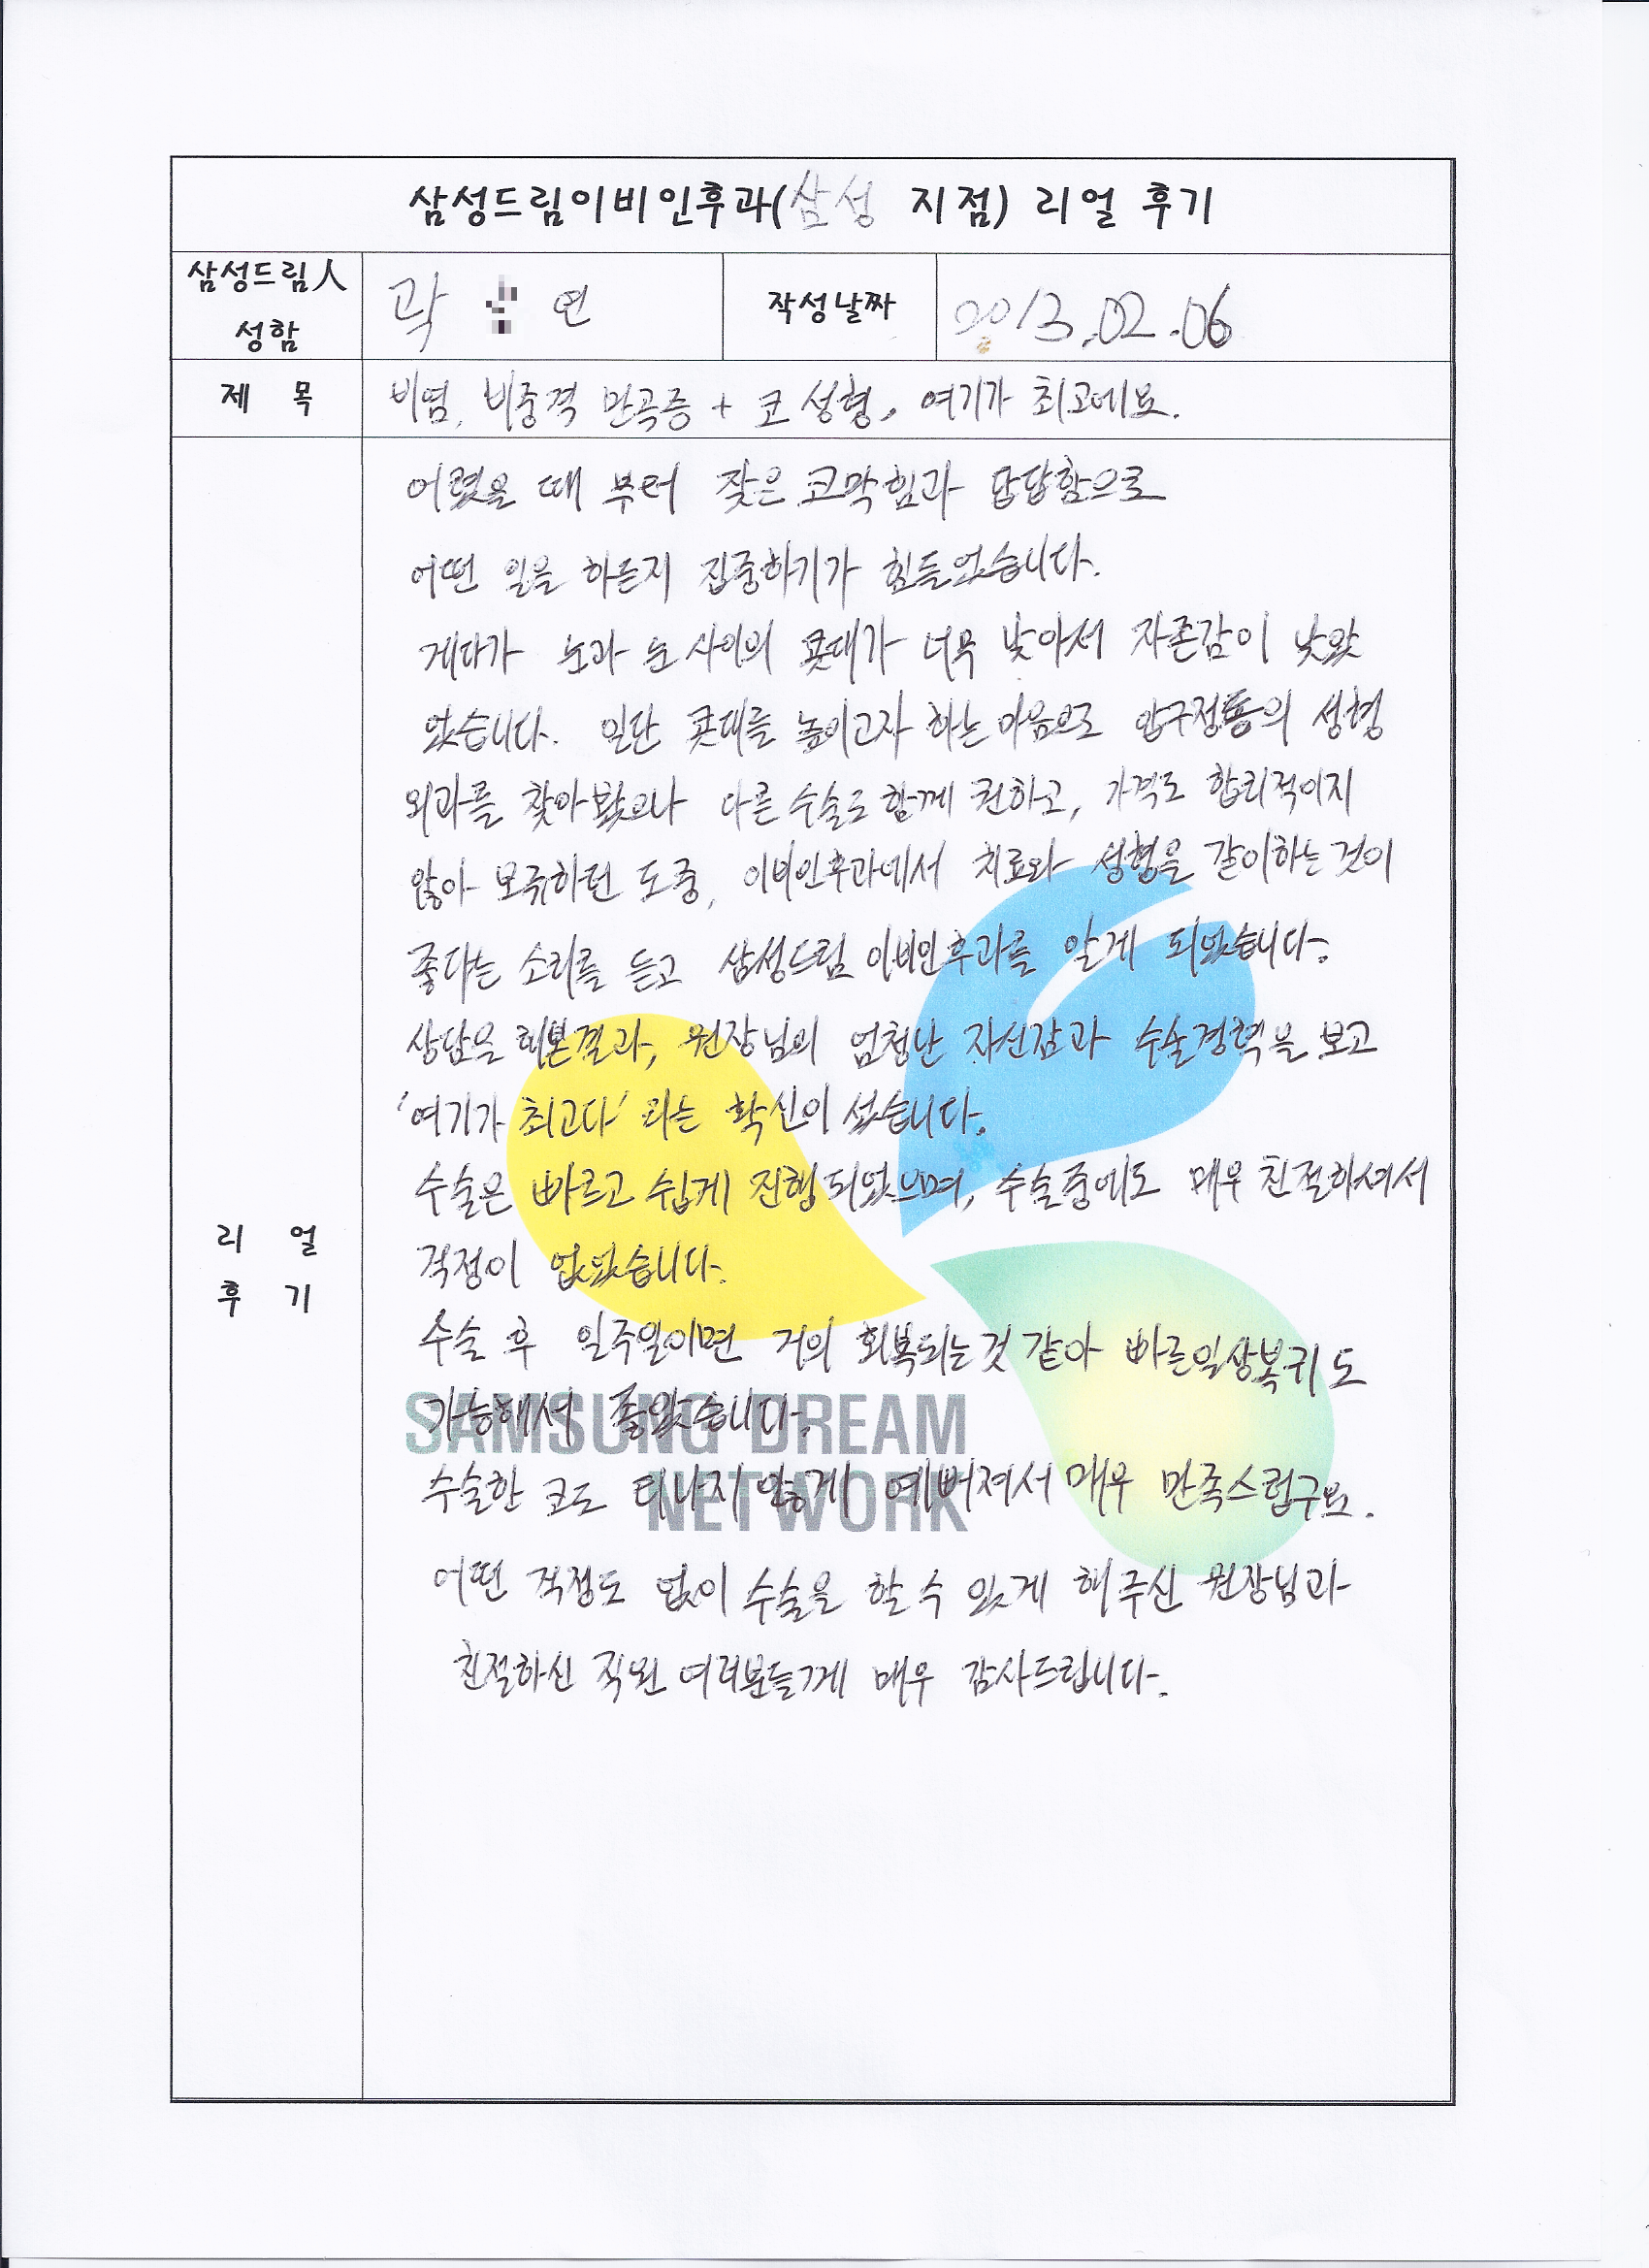 삼성드림이비인후과(삼성 지점) 리얼 후기
삼성드림人
성함
곽 연
작성날짜
2013.02.06
제 목
비염, 비중격 만곡증 + 코 성형, 여기가 최고에요.
어렸을 때 부터 잦은 코막힘과 답답함으로
어떤 일을 하든지 집중하기가 힘들었습니다.
게다가 눈과 눈 사이의 콧대가 너무 낮아서 자존감이 낮았
었습니다. 일단 콧대를 높이고자 하는 마음으로 압구정동의 성형
외과를 찾아봤으나 다른 수술도 함께 권하고, 가격도 합리적이지
않아 모색하던 도중, 이비인후과에서 치료와 성형을 같이하는 것이
좋다는 소리를 듣고 삼성드림 이비인후과를 알게 되었습니다.
상담을 해본결과, 원장님의 엄청난 자신감과 수술경력을 보고
'여기가 최고다' 라는 확신이 섰습니다.
수술은 빠르고 쉽게 진행되었으며, 수술중에도 매우 친절하셔서
걱정이 없었습니다.
수술 후 일주일이면 거의 회복되는것 같아 빠른일상복귀도
가능해서 좋았습니다.
수술한 코도 티나지 않게 예뻐져서 매우 만족스럽구요.
어떤 걱정도 없이 수술을 할 수 있게 해주신 원장님과
친절하신 직원 여러분들께 매우 감사드립니다.
리 얼
후 기
SAMSUNG DREAM
NETWORK